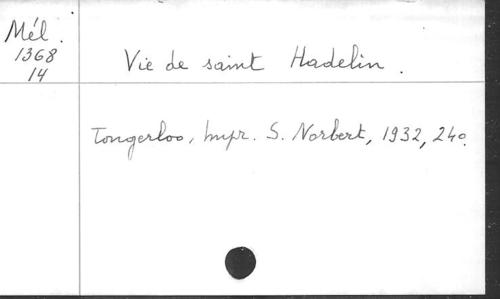 Mél.
1368
14
Vie de saint Hadelin.
Tongerloo, Impr. S. Norbert, 1932, 24o.